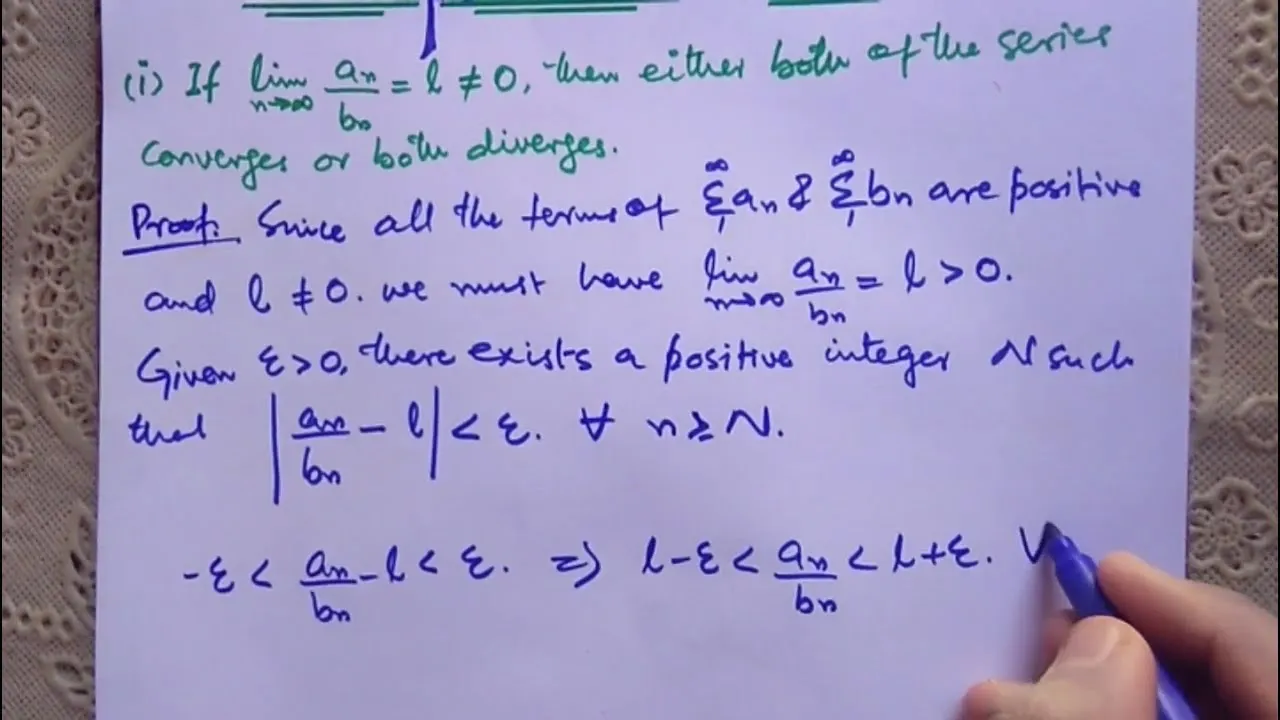 (i) If lim n→∞ an/bn = l ≠ 0, then either both of the series
converges or both diverges.
Proof: Since all the terms of ∞Σ1 an & ∞Σ1 bn are positive
and l ≠ 0. we must have lim n→∞ an/bn = l > 0.
Given ε > 0, there exists a positive integer N such
that |an/bn − l| < ε. ∀ n ≥ N.
-ε < an/bn − l < ε. ⇒ l − ε < an/bn < l + ε.